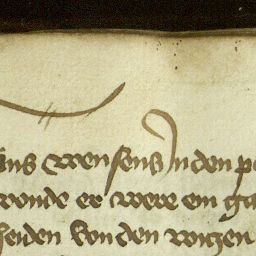 uns wensens In den p
wonde er were ein ga
heiden kon den wigen